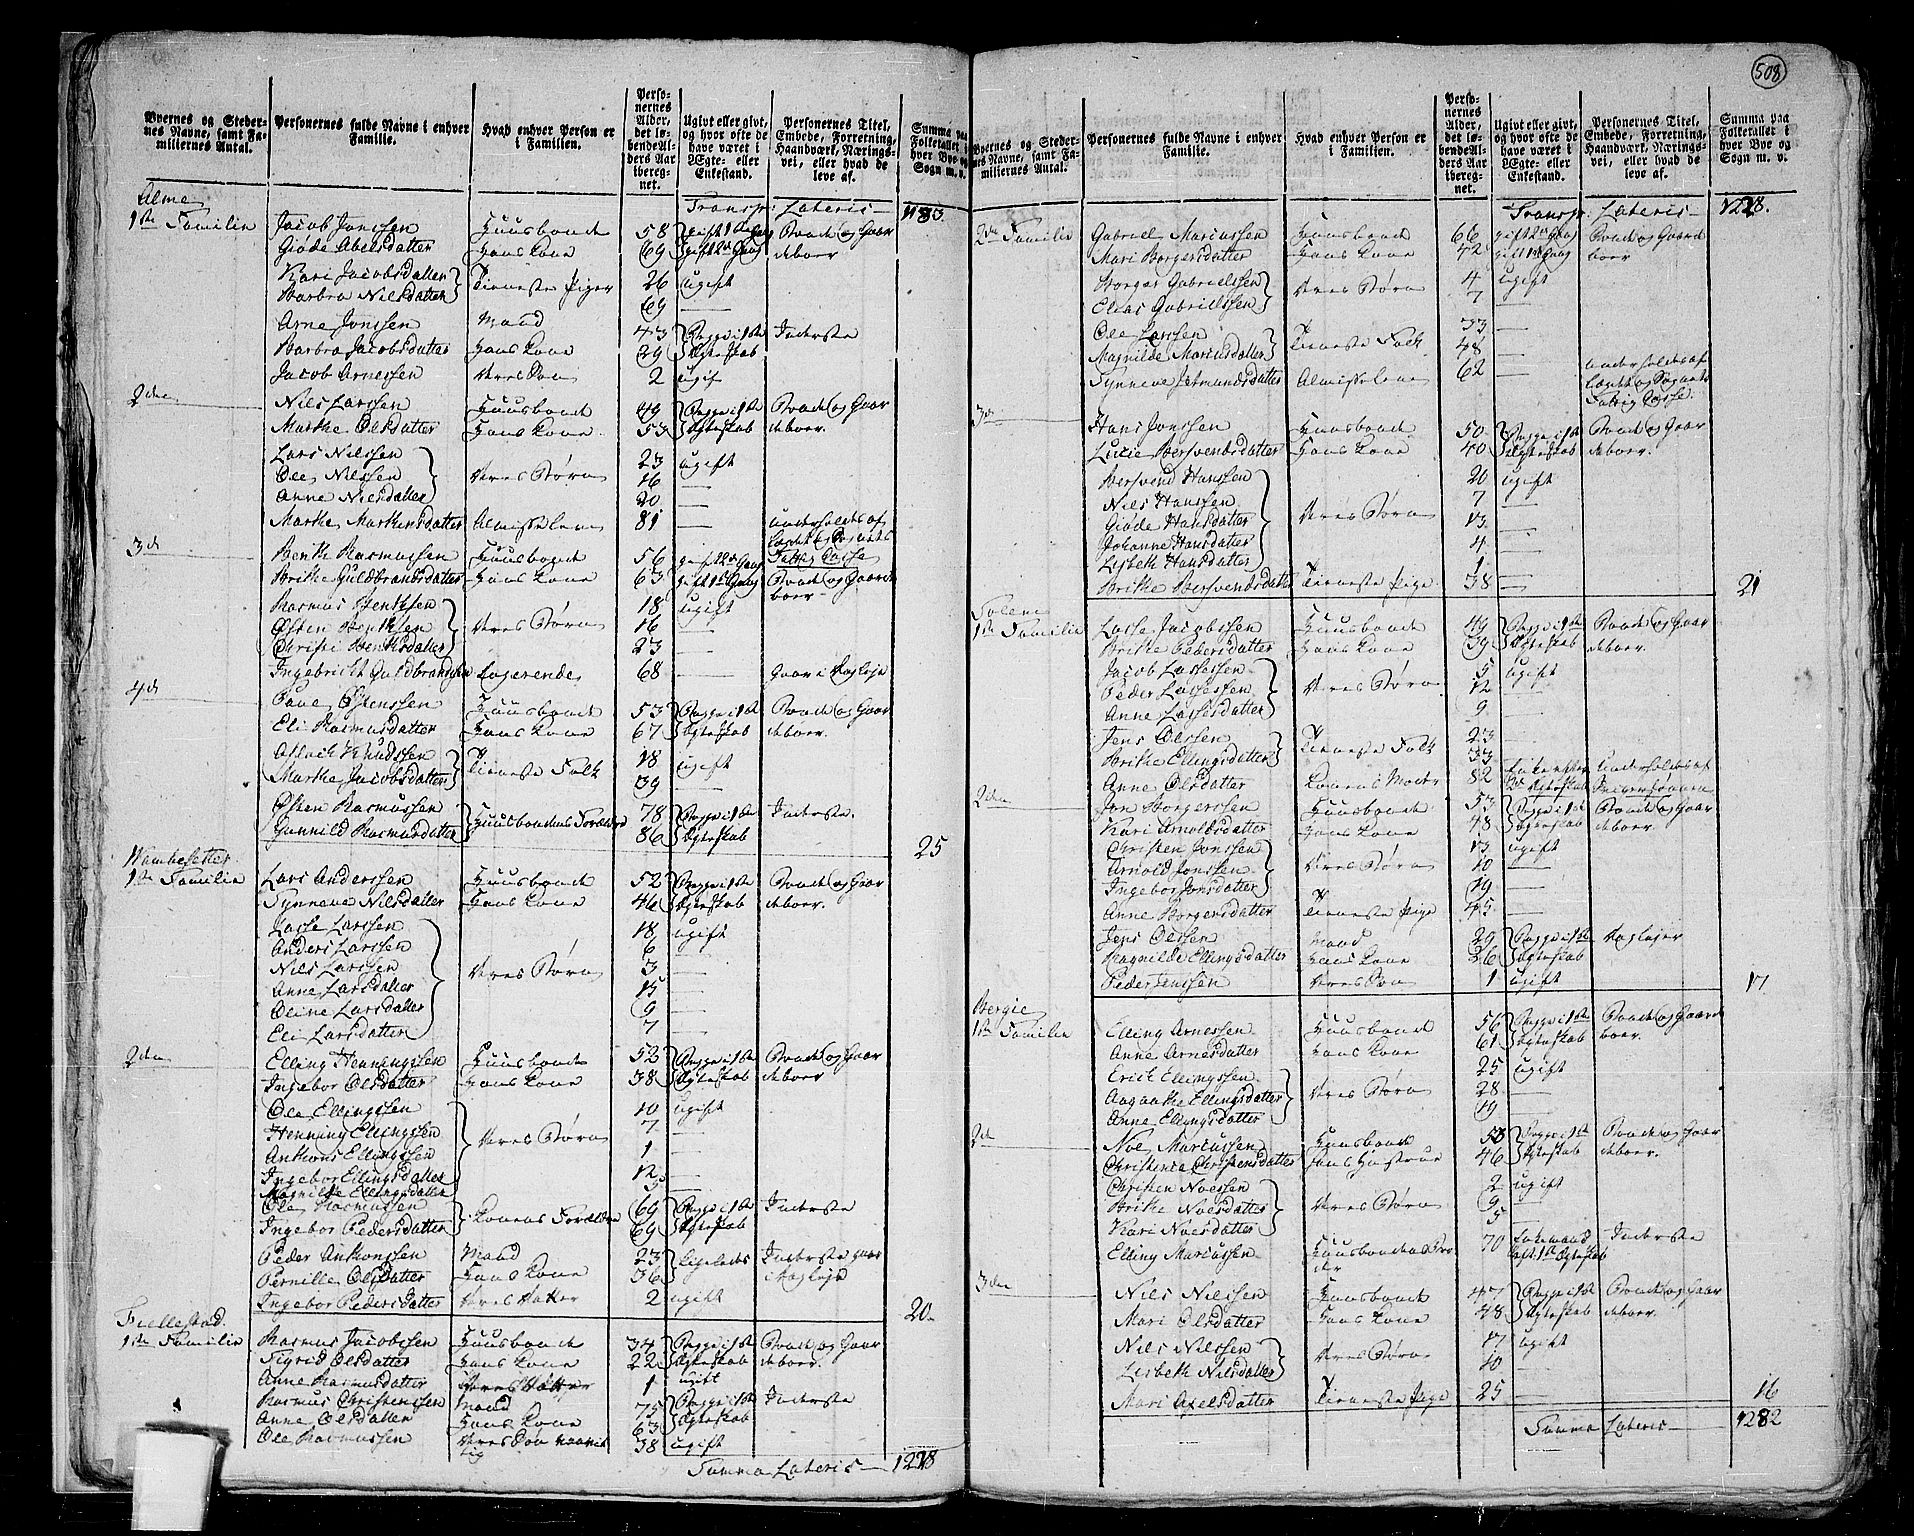 508
Byernes og Stedernes Navne, samt Familiernes Antal.
Personernes fulde Navne i enhver Familie.
Hvad enhver Person er i Familien.
Personernes Alder, det løbende Alders Aar iberegnet.
Ugivt eller givt, og hvor ofte de have været i Ægte- eller Enkestand.
Personernes Titel, Embede, Forretning, Haandværk, Næringsvei, eller hvad de leve af.
Summa paa Folketallet i hver Bye og Sogn m. v.
Transp: Lateris 1183.
Alme
1ste Familie Jacob Jonssen Huusbonde 58 gift 1ste Gang Bonde og Gaar
Giøde Abelsdatter Hans Kone 69 gift 2den Gang deboer
Kari Jacobsdatter Tieneste Piger 26 ugift
Barbra Nilsdatter 69 —
Arne Jonssen Mand 43 Begge i 1ste Inderste
Barbra Jacobsdatter Hans Kone 29 Ægteskab
Jacob Arnessen Deres Søn 2 ugift
2den Nils Larssen Huusbonde 49 Begge i 1ste Bonde og Gaar
Marthe Olsdatter Hans Kone 53 Ægteskab deboer.
Lars Nilssen 23 ugift
Ole Nilssen Deres Børn 16 —
Anne Nilsdatter 20 —
Marthe Marthinsdatter Almisselem 81 — underholdes af
3de Benth Rasmussen Huusbonde 56 gift 2den Gang
Brithe Guldbrandsdatter Hans Kone 63 gift 1ste Gang Bonde og Gaarde
boer
Rasmus Benthsen 18 ugift
Østen Benthsen Deres Børn 16 —
Christi Benthsdatter 23 —
Ingebricht Guldbrandsen Logerende 68 —
4de Paue Østenssen Huusbonde 53 Begge i 1ste Bonde og Gaar
Eli Rasmusdatter Hans Kone 67 Ægteskab deboer.
Aslach Knudssen Tieneste Folk 18 ugift
Marthe Jacobsdatter 39 —
Østen Rasmussen Huusbondens Forældre 78 Begge i 1ste Inderste.
Gunnild Rasmusdatter 86 Ægteskab
25
1ste Familie Lars Anderssen Huusbonde 52 Begge i 1ste Bonde og Gaar
Synneve Nilsdatter Hans Kone 46 Ægteskab deboer.
Lasse Larssen 18 ugift
Anders Larssen 6 —
Nils Larssen Deres Børn 3 —
Anne Larsdatter 15 —
Oline Larsdatter 9 —
Eli Larsdatter 7 —
2den Elling Henningssen Huusbonde 52 Begge i 1ste Bonde og Gaar
Ingebor Olsdatter Hans Kone 38 Ægteskab deboer
Ole Ellingssen 10 ugift
Henning Ellingssen Deres Børn 7 —
Anthons Ellingssen 1 —
Ingebor Ellingsdatter 12 —
Magnilde Ellingsdatter 3
Ole Rasmussen Konens Forældre 69 Begge i 1ste Inderste
Ingebor Pedersdatter 69 Ægteskab
Peder Anthonssen Mand 23 Ligeledes
Pernille Olsdatter Hans Kone 36
Ingebor Pedersdatter Deres Datter 2 ugift
20
Fiellestad.
1ste Familie Rasmus Jacobssen Huusbonde 34 Begge i 1ste Bonde og Gaar
Sigrid Olsdatter Hans Kone 22 Ægteskab deboer.
Anne Rasmusdatter Deres Datter 1 ugift
Rasmus Christenssen Mand 75 Begge i 1ste Inderste
Anne Olsdatter Hans Kone 63 Ægteskab
Ole Rasmussen Deres Søn 38 ugift
Summa Lateris 1228
Byernes og Stedernes Navne, samt Familiernes Antal.
Personernes fulde Navne i enhver Familie.
Hvad enhver Person er i Familien.
Personernes Alder, det løbende Alders Aar iberegnet.
Ugivt eller givt, og hvor ofte de have været i Ægte- eller Enkestand.
Personernes Titel, Embede, Forretning, Haandværk, Næringsvei, eller hvad de leve af.
Summa paa Folketallet i hver Bye og Sogn m. v.
Transp: Lateris 1228.
2den Familie Gabriel Mariussen Huusbonde 66 gift 2den Gang Bonde og Gaarde
Mari Borgersdatter Hans Kone 42 gift 1ste Gang boer
Borger Gabrielssen Deres Børn 4 ugift
Elias Gabrielssen 7 —
Ole Larssen Tieneste Folk 33 —
Magnilde Mariusdatter 48 —
Synneve Jetmundsdatter Almisselem 62 — underholdes af
3de Hans Jonssen Huusbonde 50 Begge i 1ste Bonde og Gaar
Lucie Bersvendsdatter Hans Kone 40 Ægteskab deboer.
Bersvend Hanssen 20 ugift
Nils Hanssen 7 —
Giøde Hansdatter Deres Børn 13 —
Johanne Hansdatter 4 —
Lisbeth Hansdatter 1 —
Brithe Bersvendsdatter Tieneste Pige 38 —
21
1ste Familie Lasse Jacobssen Huusbonde 49 Begge i 1ste Bonde og Gaar
Brithe Pedersdatter Hans Kone 39 Ægteskab deboer.
Jacob Lassessen 5 ugift
Peder Lassessen Deres Børn 12 —
Anne Lassesdatter 9 —
Jens Olssen Tieneste Folk 23 —
Brithe Ellingsdatter 33 —
Anne Olsdatter Konens Moder 82
2den Jon Borgerssen Huusbonde 53 Begge i 1ste Bonde og Gaar
Kari Arnoldsdatter Hans Kone 48 Ægteskab deboer.
Christen Jonssen 13 ugift
Arnold Jonssen Deres Børn 10 —
Ingebor Jonsdatter 19 —
Anne Borgersdatter Tieneste Pige 45 —
Jens Olssen Mand 29 Begge i 1ste
Magnilde Ellingsdatter Hans Kone 26 Ægteskab
Peder Jenssen Deres Søn 1 ugift
17
Bergie
1ste Familie Elling Arnessen Huusbonde 56 Begge i 1ste Bonde og Gaarde
Anne Arnesdatter Hans Kone 61 Ægteskab boer.
Erich Ellingssen 25 ugift
Aagaathe Ellingsdatter Deres Børn 28 —
Anne Ellingsdatter 19 —
2den Noe Mariussen Huusbonde Begge i 1ste Bonde og Gaar
Christense Christensdatter Hans Hustrue 46 Ægteskab deboer.
Christen Noessen 2 ugift
Brithe Noesdatter Deres Børn 9 —
Kari Noesdatter 5
Elling Mariussen Huusbondens Bro 70 Enkemand Inderste
der
3die Nils Nilssen Huusbonde 47 Begge i 1ste Bonde og Gaar
Mari Olsdatter Hans Kone 48 Ægteskab deboer.
Nils Nilssen Deres Børn 17 ugift
Lisbeth Nilsdatter 10 —
Mari Axelsdatter Tieneste Pige 25 —
16
Summa Lateris 1282